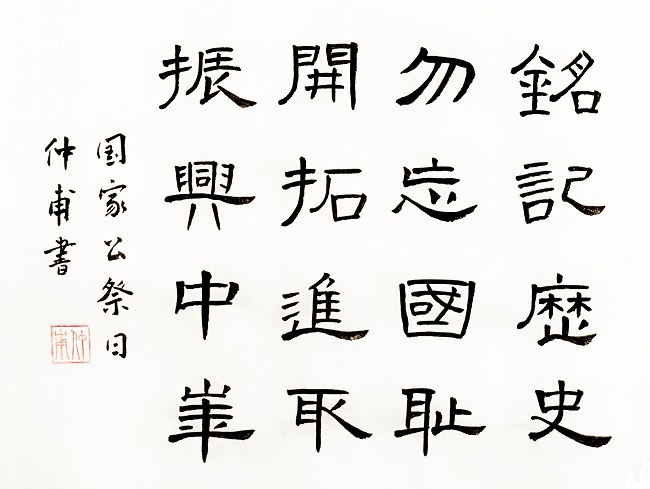 銘記歷史
勿忘國耻
開拓進取
振興中華
国家公祭日
仲甫書
仲甫